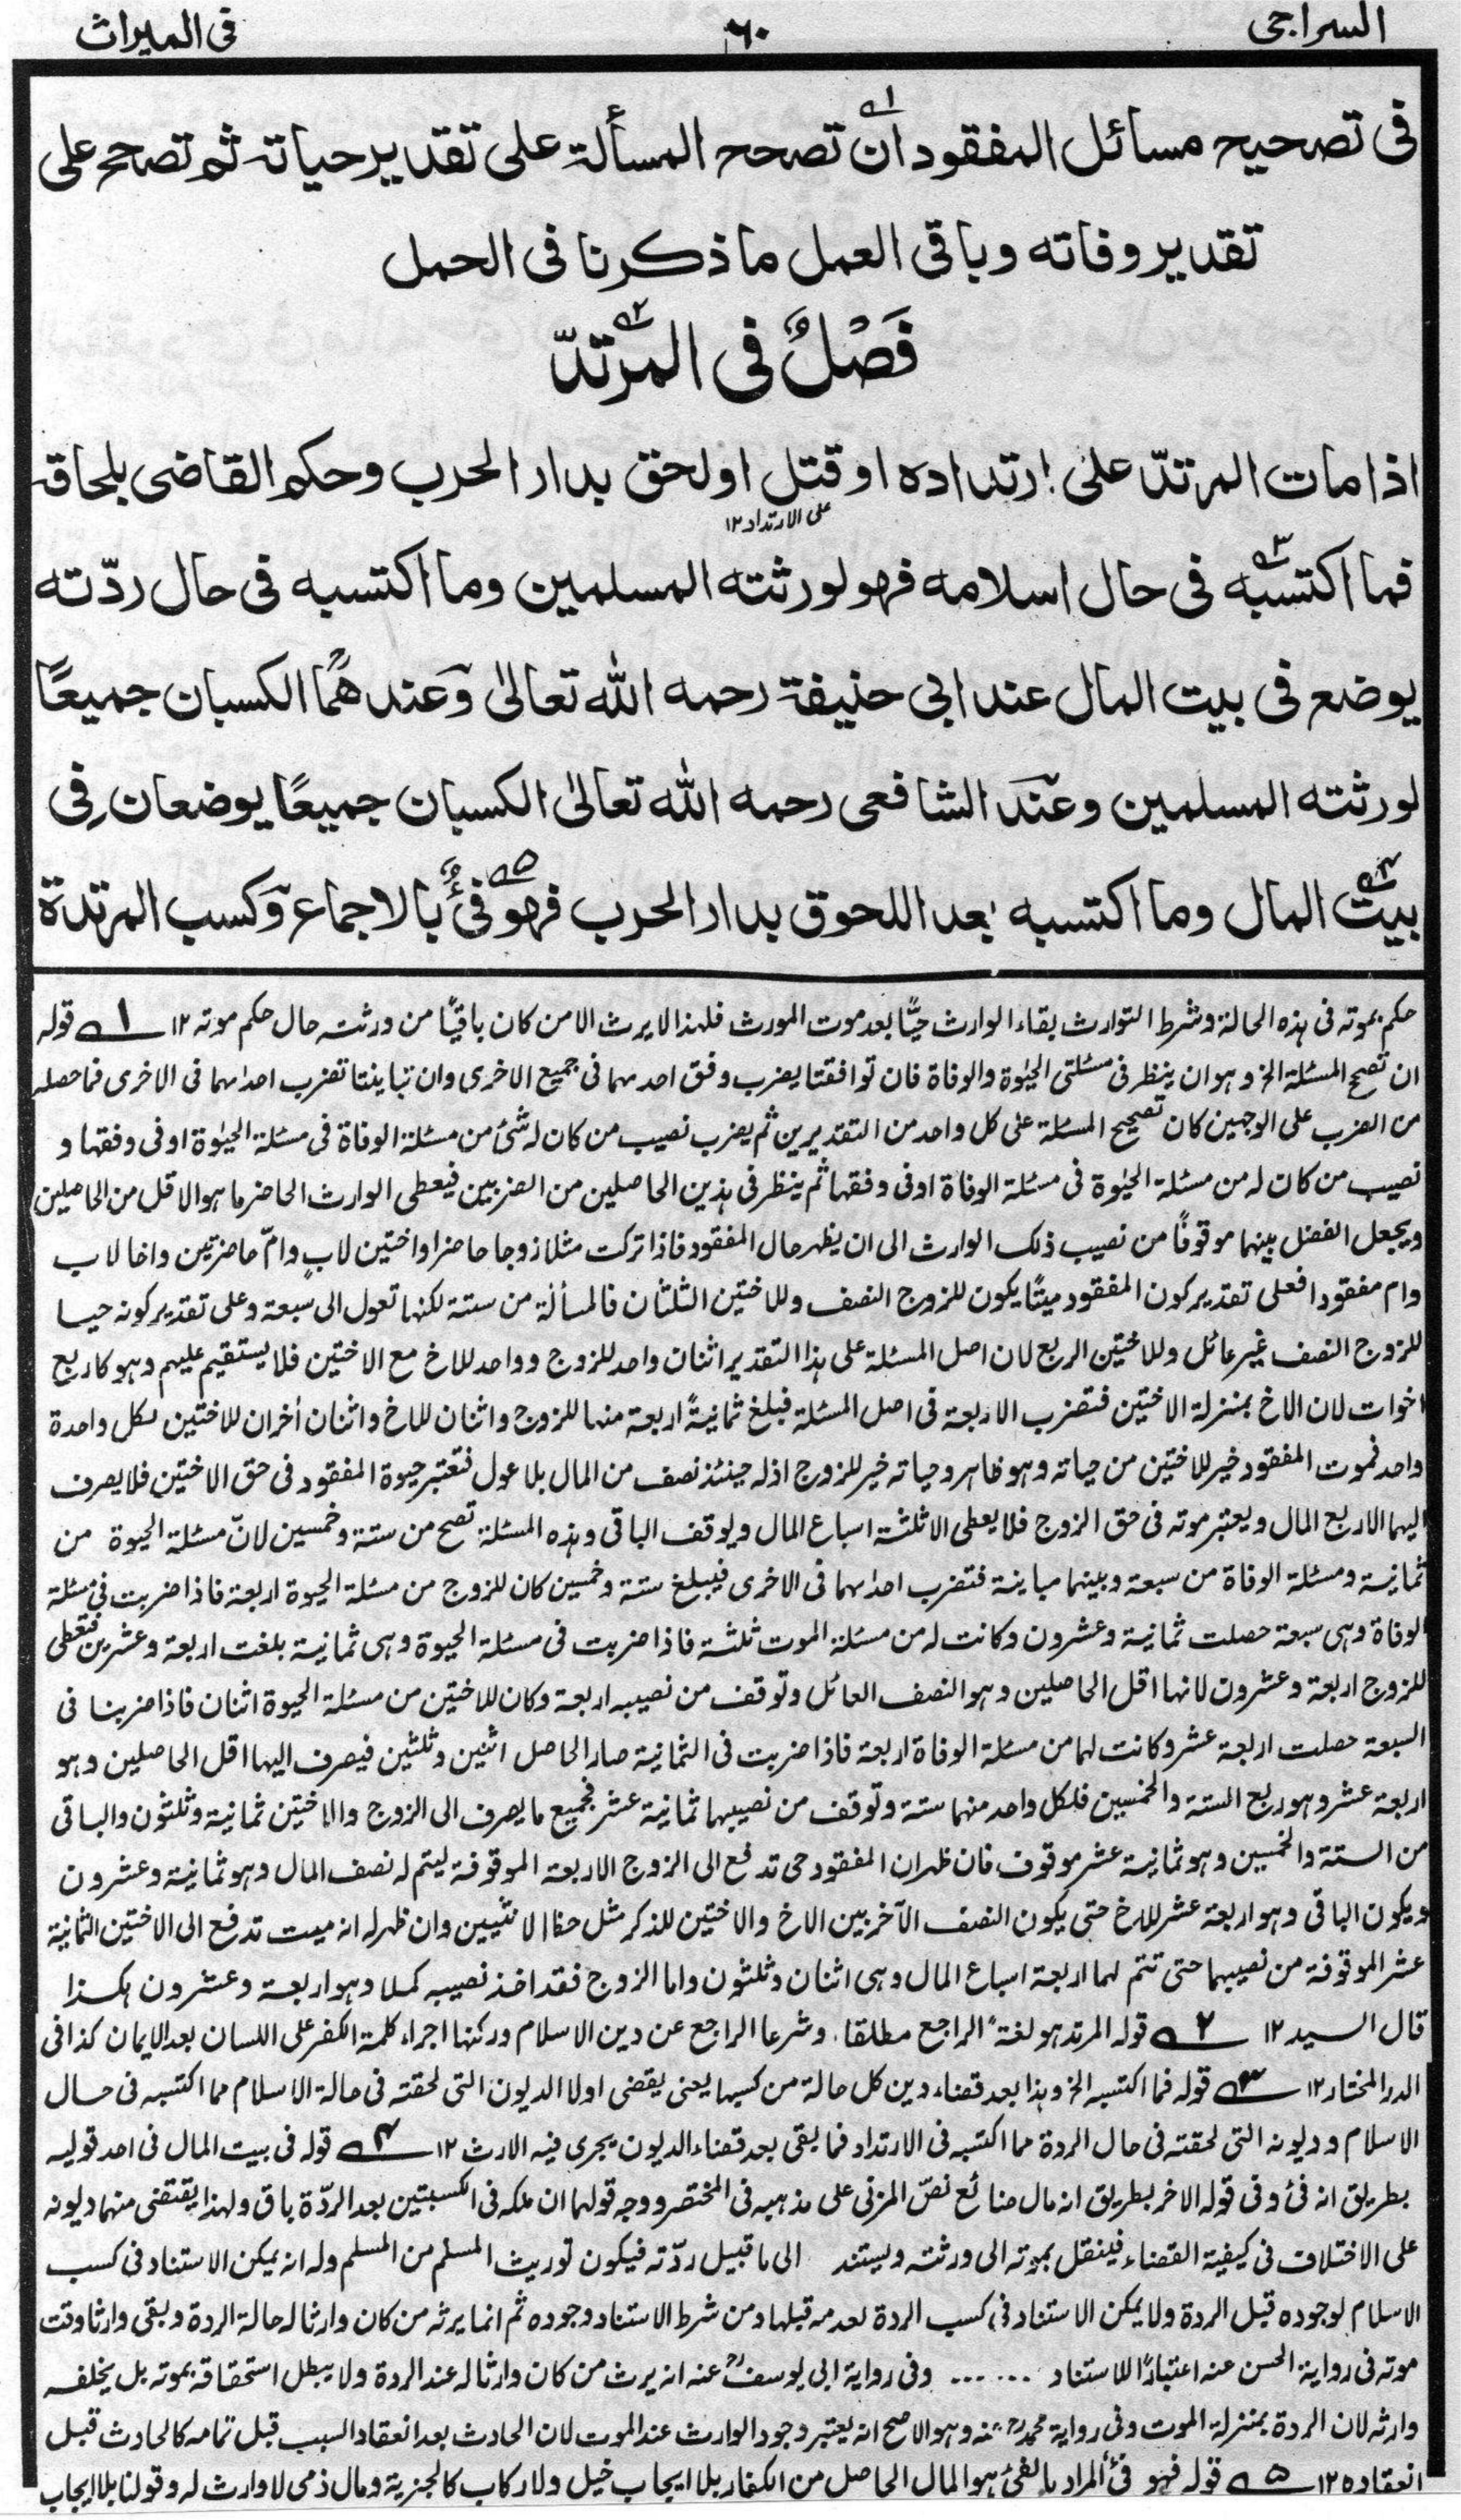 السراجی ٦٠ فی المیراث
فی تصحیح مسائل المفقود ان تصحح المسألة علی تقدیر حیاته ثم تصحح علی
تقدیر وفاته وباقی العمل ما ذکرنا فی الحمل
فَصْلٌ فی المرتدّ
اذا مات المرتدّ علی ارتداده او قتل او لحق بدار الحرب وحکم القاضی بلحاقه
علی الارتداد ۱۲
فما اکتسبه فی حال اسلامه فهو لورثته المسلمین وما اکتسبه فی حال ردّته
یوضع فی بیت المال عند ابی حنیفة رحمه الله تعالیٰ وعندهما الکسبان جمیعًا
لورثته المسلمین وعند الشافعی رحمه الله تعالیٰ الکسبان جمیعًا یوضعان فِی
بیت المال وما اکتسبه بعد اللحوق بدار الحرب فهو فئٌ بالاجماع وکسب المرتدة
حکم بموته فی هذه الحالة وشرط التوارث بقاء الوارث حیًّا بعد موت المورث فلهذا لا یرث الا من کان باقیًا من ورثته حال حکم موته ۱۲ ۱ قوله
ان تصح المسئلة الخ وهو ان ینظر فی مسئلتی الحیٰوة والوفاة فان توافقتا یضرب وفق احدهما فی جمیع الاخری وان تباینتا تضرب احداهما فی الاخری فما حصله
من الضرب علی الوجهین کان تصحیح المسئلة علی کل واحد من التقدیرین ثم یضرب نصیب من کان له شئ من مسئلة الوفاة فی مسئلة الحیٰوة او فی وفقها و
نصیب من کان له من مسئلة الحیٰوة فی مسئلة الوفاة او فی وفقها ثم ینظر فی هذین الحاصلین من الضربین فیعطی الوارث الحاضر ما هو الاقل من الحاصلین
ویجعل الفضل بینهما موقوفًا من نصیب ذلک الوارث الی ان یظهر حال المفقود فاذا ترکت مثلا زوجا حاضرا واختین لابٍ وامّ حاضرتین واخا لاب
وام مفقودا فعلی تقدیر کون المفقود میتًا یکون للزوج النصف وللاختین الثلثان فالمسألة من ستة لکنها تعول الی سبعة وعلی تقدیر کونه حیا
للزوج النصف غیر عائل وللاختین الربع لان اصل المسئلة علی هذا التقدیر اثنان واحد للزوج وواحد للاخ مع الاختین فلا یستقیم علیهم وهو کاربع
اخوات لان الاخ بمنزلة الاختین فتضرب الاربعة فی اصل المسئلة فبلغ ثمانیةً اربعة منها للزوج واثنان للاخ واثنان أخران للاختین لکل واحدة
واحد فموت المفقود خیر للاختین من حیاته وهو ظاهر وحیاته خیر للزوج اذ له حینئذ نصف من المال بلا عول فتعتبر حیوة المفقود فی حق الاختین فلا یصرف
الیهما الا ربع المال ویعتبر موته فی حق الزوج فلا یعطی الا ثلثة اسباع المال ویوقف الباقی وهذه المسئلة تصح من ستة وخمسین لانّ مسئلة الحیوة من
ثمانیة ومسئلة الوفاة من سبعة وبینهما مباینة فتضرب احداهما فی الاخری فیبلغ ستة وخمسین کان للزوج من مسئلة الحیوة اربعة فاذا ضربت فی مسئلة
الوفاة وهی سبعة حصلت ثمانیة وعشرون وکانت له من مسئلة الموت ثلثة فاذا ضربت فی مسئلة الحیوة وهی ثمانیة بلغت اربعة وعشرین فتعطی
للزوج اربعة وعشرون لانها اقل الحاصلین وهو النصف العائل وتوقف من نصیبه اربعة وکان للاختین من مسئلة الحیوة اثنان فاذا ضربنا فی
السبعة حصلت اربعة عشر وکانت لهما من مسئلة الوفاة اربعة فاذا ضربت فی الثمانیة صار الحاصل اثنین وثلثین فیصرف الیهما اقل الحاصلین وهو
اربعة عشر وهو ربع الستة والخمسین فلکل واحد منهما ستة وتوقف من نصیبهما ثمانیة عشر فجمیع ما یصرف الی الزوج والاختین ثمانیة وثلثون والباقی
من الستة والخمسین وهو ثمانیة عشر موقوف فان ظهر ان المفقود حی تدفع الی الزوج الاربعة الموقوفة لیتم له نصف المال وهو ثمانیة وعشرون
ویکون الباقی وهو اربعة عشر للارخ حتی یکون النصف الآخر بین الاخ والاختین للذکر مثل حظ الانثیین وان ظهر له انه میت تدفع الی الاختین الثمانیة
عشر الموقوفة من نصیبهما حتی تتم لهما اربعة اسباع المال وهی اثنان وثلثون واما الزوج فقد اخذ نصیبه کملا وهو اربعة وعشرون هکذا
قال السید ۱۲ ۲ قوله المرتد هو لغةً الراجع مطلقا وشرعا الراجع عن دین الاسلام ورکنها اجراء کلمة الکفر علی اللسان بعد الایمان کذا فی
الدر المختار ۱۲ ۳ قوله فما اکتسبه الخ وهذا بعد قضاء دین کل حالة من کسبها یعنی یقضی اولا الدیون التی لحقته فی حالة الاسلام مما اکتسبه فی حال
الاسلام ودیونه التی لحقته فی حال الردة مما اکتسبه فی الارتداد فما یبقی بعد قضاء الدیون یجری فیه الارث ۱۲ ۴ قوله فی بیت المال فی احد قولیه
بطریق انه فئ وفی قوله الاخر بطریق انه مال ضائع نصّ المزنی علی مذهبه فی المختصر ووجه قولهما ان ملکه فی الکسبتین بعد الردّة باق ولهذا یقتضی منهما دیونه
علی الاختلاف فی کیفیة القضاء فینقل بموته الی ورثته ویستند الی ما قبیل ردّته فیکون توریث المسلم من المسلم وله انه یمکن الاستناد فی کسب
الاسلام لوجوده قبل الردة ولا یمکن الاستناد فی کسب الردة لعدمه قبلها ومن شرط الاستناد وجوده ثم انما یرثه من کان وارثا له حالة الردة وبقی وارثا وقت
موته فی روایة الحسن عنه اعتبارًا للاستناد ...... وفی روایة ابی یوسفؒ عنه انه یرث من کان وارثا له عند الردة ولا یبطل استحقاقه بموته بل یخلفه
وارثه لان الردة بمنزلة الموت وفی روایة محمدؒ عنه وهو الاصح انه یعتبر وجود الوارث عند الموت لان الحادث بعد انعقاد السبب قبل تمامه کالحادث قبل
انعقاده ۱۲ ۵ قوله فهو فئٌ المراد بالفئ هو المال الحاصل من الکفار بلا ایجاب خیل ولا رکاب کالجزیة ومال ذمی لا وارث له وقولنا بلا ایجاب